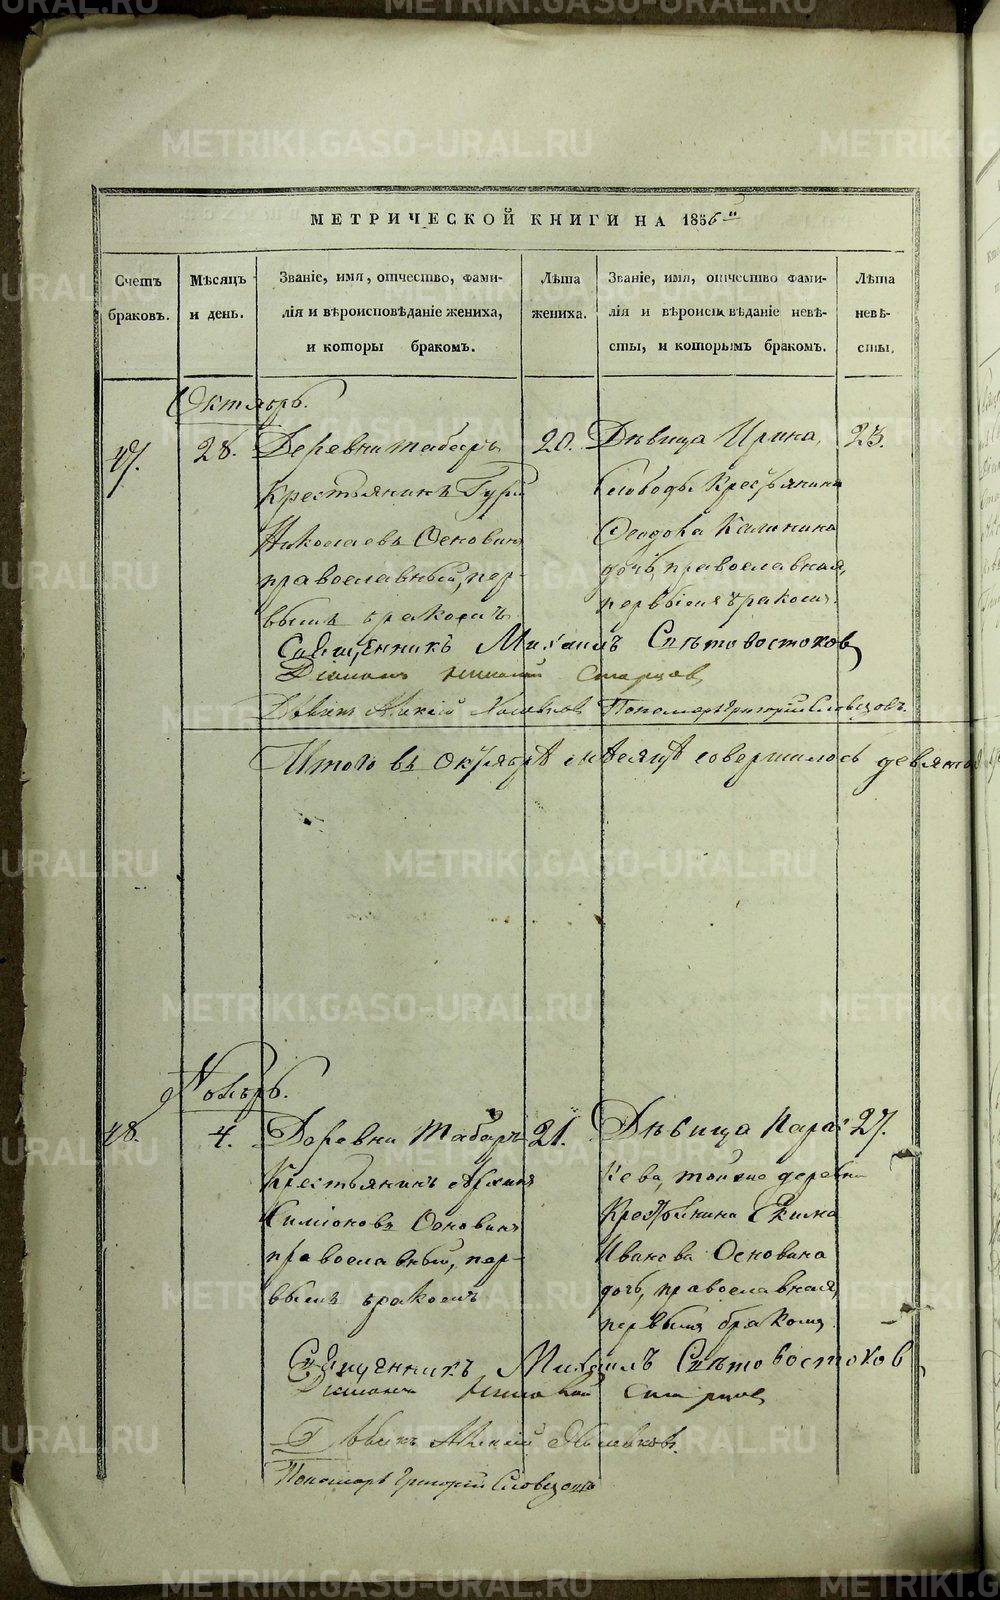 МЕТРИЧЕСКОЙ КНИГИ НА 1856й
Счетъ браковъ.
Мѣсяцъ и день.
Званіе, имя, отчество, фами-
лія и вѣроисповѣданіе жениха,
и которы бракомъ.
Лѣта
жениха.
Званіе, имя, отчество фами-
лія и вѣроиспо вѣданіе невѣ-
сты, и которымъ бракомъ.
Лѣта
невѣ-
сты.
Октябрь.
47.
28.
Деревни Табаръ
Крестьянинъ Гурій
Николаевъ Осковинъ
православный, пер-
вымъ бракомъ
20.
Дѣвица Ирина,
Слободы Крестьянина
Ѳеодора Калинина
дочь, православная,
первымъ бракомъ.
23.
Священникъ Михаилъ Свѣтовостоковъ
Діаконъ Николай Старцовъ
Дьячекъ
Пономарь Григорій Словцовъ.
Итого въ Октябрѣ мѣсяцѣ совершилось девять
Ноябрь.
48.
4.
Деревни Табаръ
Крестьянинъ Архипъ
Симіоновъ Осковинъ
православный, пер-
вымъ бракомъ
21.
Дѣвица Парас-
кева, той же деревни
Крестьянина Екима
Иванова Осковина
дочь, православная,
первымъ бракомъ.
27.
Священникъ Михаилъ Свѣтовостоковъ
Діаконъ Николай Старцовъ
Дьячекъ
Пономарь Григорій Словцовъ
METRIKI.GASO-URAL.RU